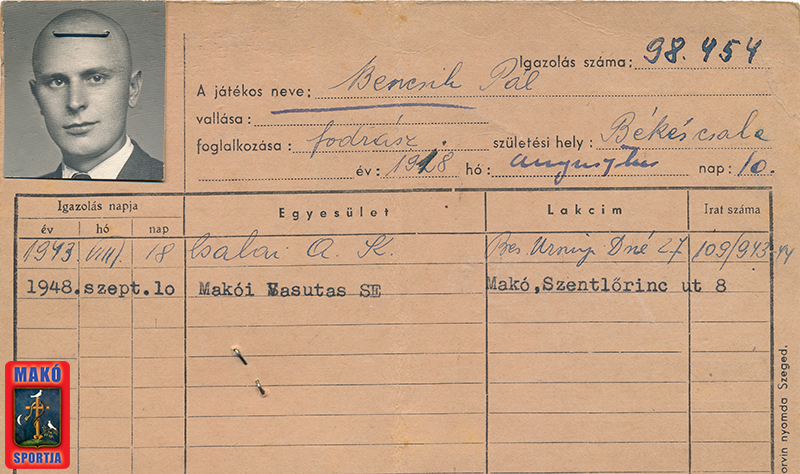 Igazolás száma: 98.454
A játékos neve: Bencsik Pál
vallása:
foglalkozása: fodrász. születési hely: Békéscsaba
év: 1918 hó: augusztus nap: 10.
Igazolás napja Egyesület Lakcim Irat száma
év hó nap
1943 VIII. 18 Csabai A. K. Bcs. Dné 27 109/943
1948.szept.10 Makói Vasutas SE Makó,Szentlőrinc ut 8
orvin nyomda Szeged.
MAKÓ
SPORTJA